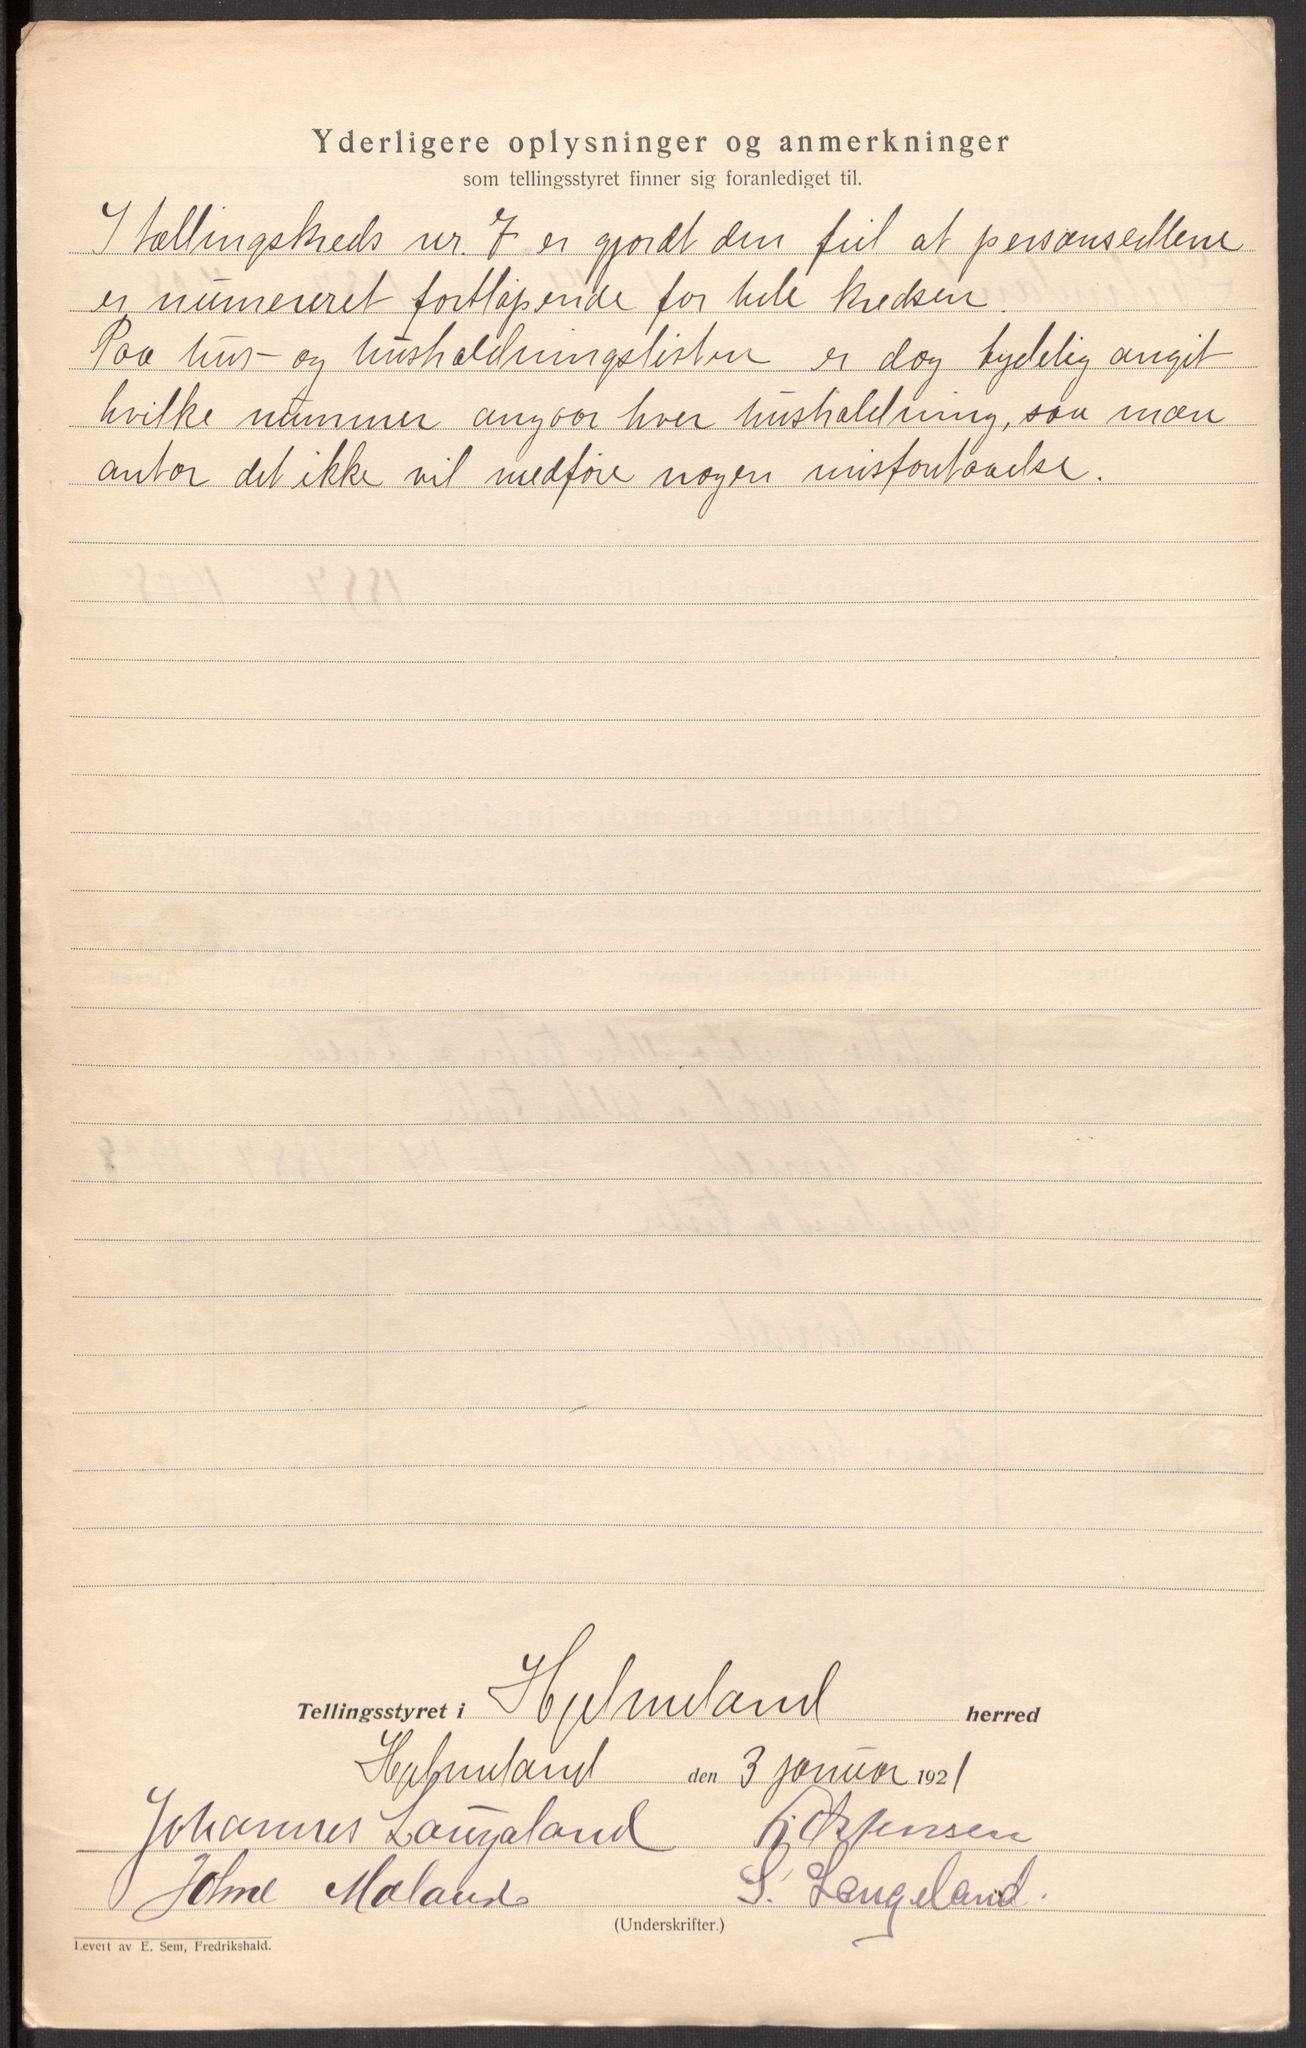 Yderligere oplysninger og anmerkninger
som tellingsstyret finner sig foranlediget til.
I tællingskreds nr. 7 er gjordt den feil at personsedlene
er numereret fortløpende for hele kredsen.
Paa hus- og husholdningslisten er dog tydelig angit
hvilke nummer angaar hver husholdning, saa man
antar det ikke vil medføre nogen misforstaaelse.
Tellingsstyret i Hjelmeland herred
Hjelmeland den 3 januar 1921
Johannes Laugaland
Johne Mæland S. Laugeland.
(Underskrifter.)
Levert av E. Sem, Fredrikshald.